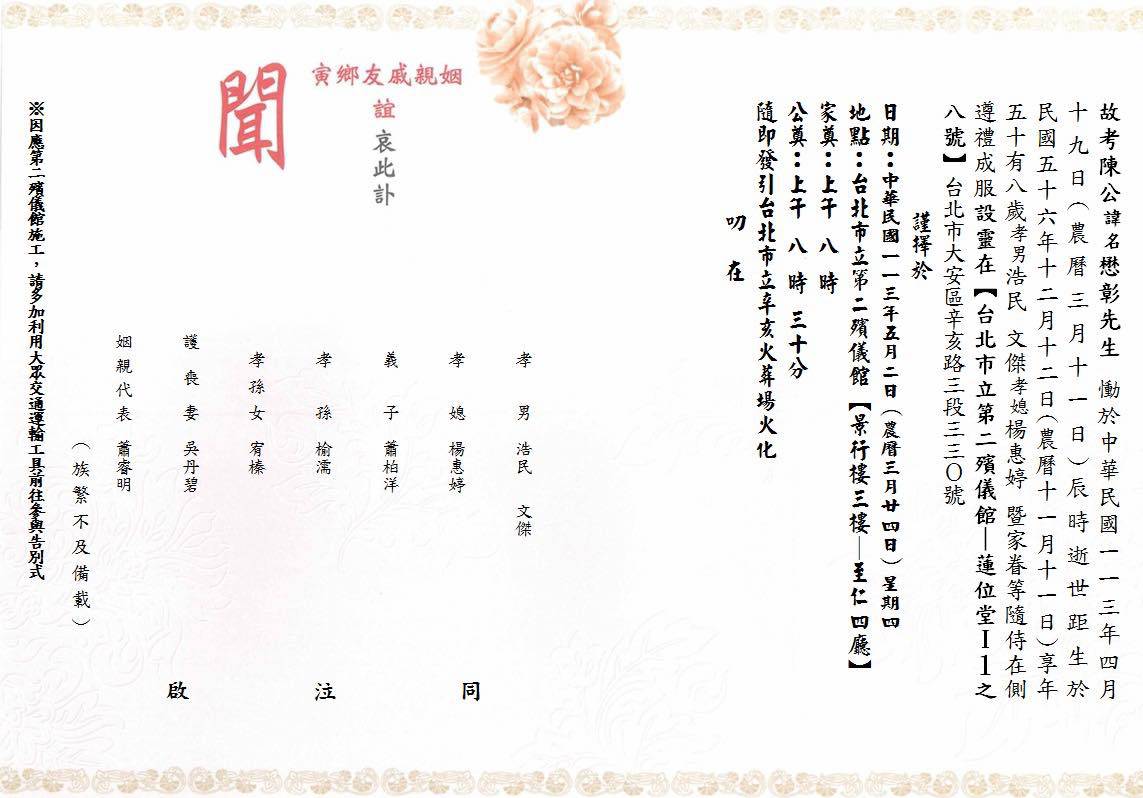 故考陳公諱名懋彰先生　慟於中華民國一一三年四月
十九日(農曆三月十一日)辰時逝世距生於
民國五十六年十二月十二日(農曆十一月十一日)享年
五十有八歲孝男浩民　文傑孝媳楊惠婷　暨家眷等隨侍在側
遵禮成服設靈在【台北市立第二殯儀館—蓮位堂I1之
八號】台北市大安區辛亥路三段三三〇號
謹擇於
日期：中華民國一一三年五月二日(農曆三月廿四日)星期四
地點：台北市立第二殯儀館【景行樓三樓—至仁四廳】
家奠：上午　八　時
公奠：上午　八　時　三十分
隨即發引台北市立辛亥火葬場火化
叨　在
姻親戚友鄉寅
誼
哀此訃
聞
孝　男　浩民　文傑
孝　媳　楊惠婷
義　子　蕭柏洋
孝　孫　榆濡
孝孫女　宥榛
護喪妻　吳丹碧
姻親代表　蕭睿明
(族繁不及備載)
同　注　啟
※因應第二殯儀館施工，請多加利用大眾交通運輸工具前往參與告別式